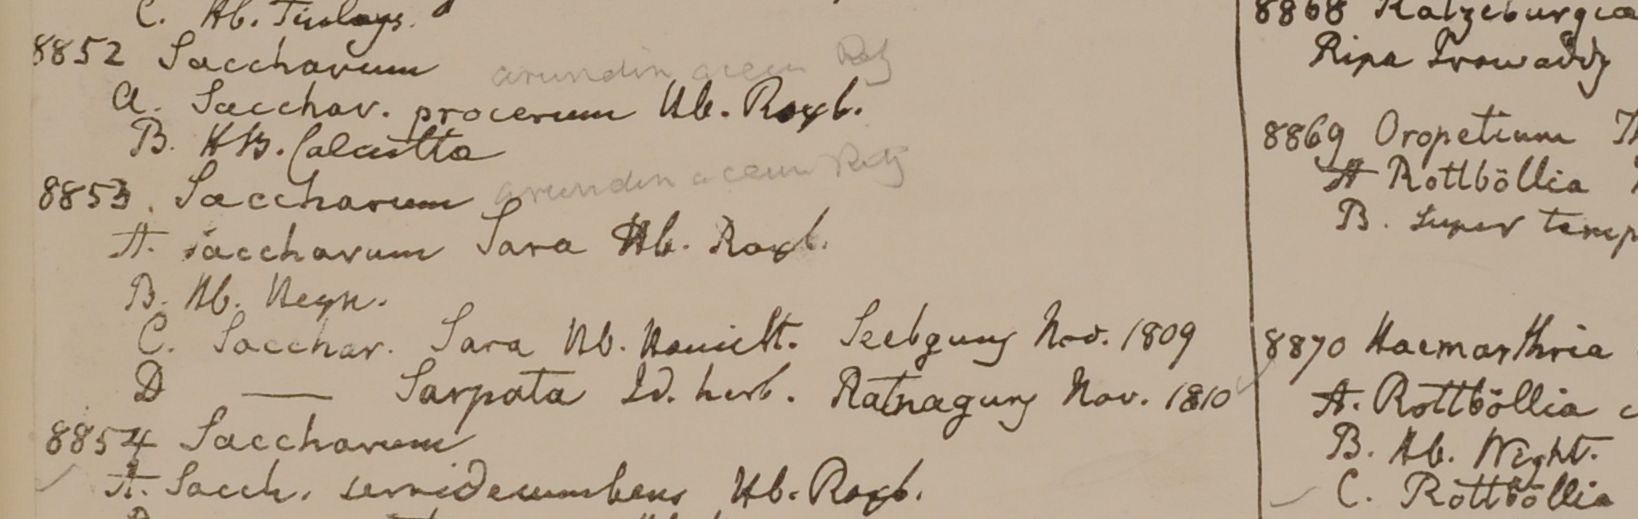 C. Hb. Finlays.
8852 Saccharum arundinaceum Retz
a. Sacchar. procerum Hb. Roxb.
B. HB. Calcutta
8853. Saccharum arundinaceum Retz
A. saccharum Sara Hb. Roxb.
B. Hb. Heyn.
C. Sacchar. Sara Hb. Hamilt. Seebgunj Nov. 1809
D —— Sarpata Id. herb. Ratnagunj Nov. 1810
8854 Saccharum
A. Sacch. semidecumbens Hb. Roxb.
8868 Ratzeburgia
Ripa Irawaddy
8869 Oropetium Th
A Rottböllia
B. super temp
8870 Haemarthria
A. Rottböllia c
B. Hb. Wight.
C. Rottböllia